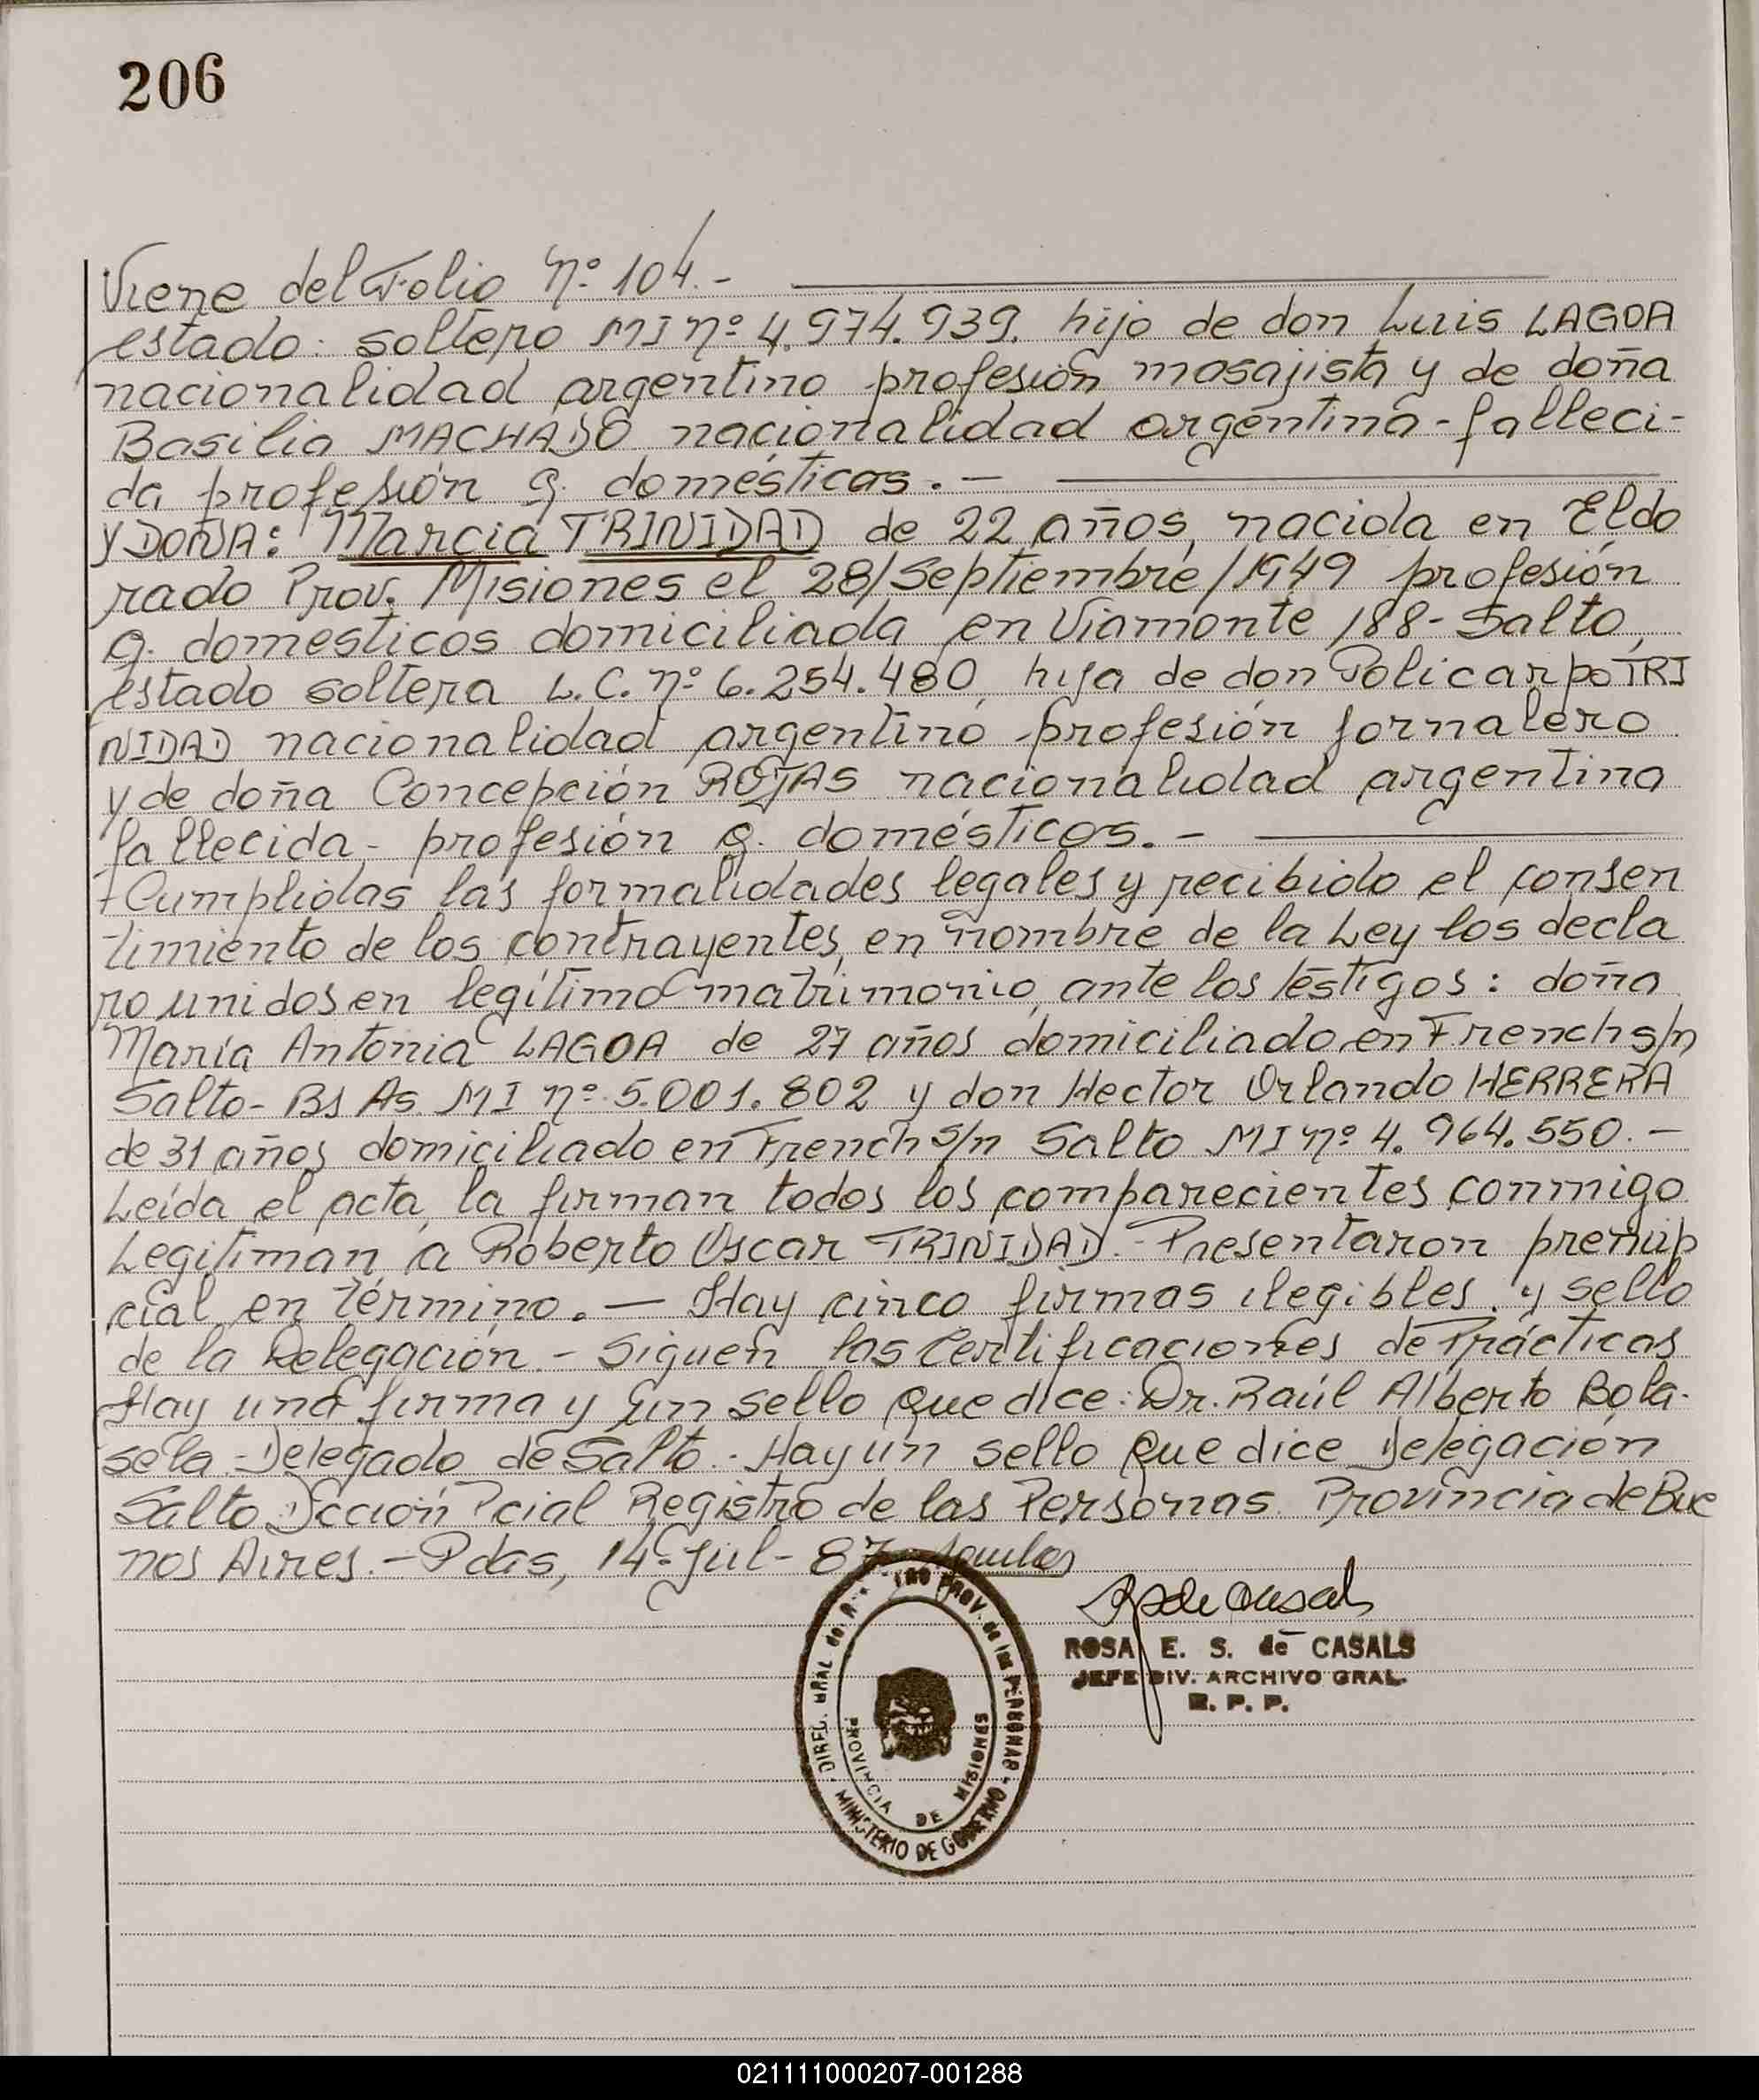 206
Viene del Folio Nº 104.-
estado: soltero MI Nº 4.974.939. hijo de don Luis LAGOA
nacionalidad argentino profesión mosajista y de doña
Basilia MACHADO nacionalidad argentina - falleci-
da profesión q. domésticos. -
y DOÑA: Marcia TRINIDAD de 22 años, nacida en Eldo
rado Prov. Misiones el 28/Septiembre/1949 profesión
q. domesticos domiciliada en Viamonte 188 - Salto,
estado soltera L.C. nº 6.254.480, hija de don Policarpo TRI
NIDAD nacionalidad argentino profesión jornalero
y de doña Concepción ROJAS nacionalidad argentina
fallecida - profesión q. domésticos. -
+ Cumplidas las formalidades legales y recibido el consen
timiento de los contrayentes, en nombre de la Ley los decla
ro unidos en legítimo matrimonio, ante los testigos: doña
María Antonia LAGOA de 27 años domiciliado en French s/n
Salto - Bs As MI nº 5.001.802 y don Hector Orlando HERRERA
de 31 años domiciliado en French s/n Salto MI nº 4.964.550. -
Leída el acta, la firman todos los comparecientes conmigo
Legitiman a Roberto Oscar TRINIDAD. - Presentaron prenup
cial en término. - Hay cinco firmas ilegibles y sello
de la Delegación - Siguen las Certificaciones de Prácticas
Hay una firma y un sello que dice: Dr. Raúl Alberto Bola-
sela - Delegado de Salto. - Hay un sello que dice Delegación
Salto Dcción Pcial Registro de las Personas. Provincia de Bue
nos Aires. - Pdas, 14 - Jul - 87
ROSA E. S. de CASALS
JEFE DIV. ARCHIVO GRAL.
R. P. P.
PROV. de las PERSONAS - MINISTERIO DE GOBIERNO - DIREC. GRAL de
PROVINCIA DE MISIONES
021111000207-001288